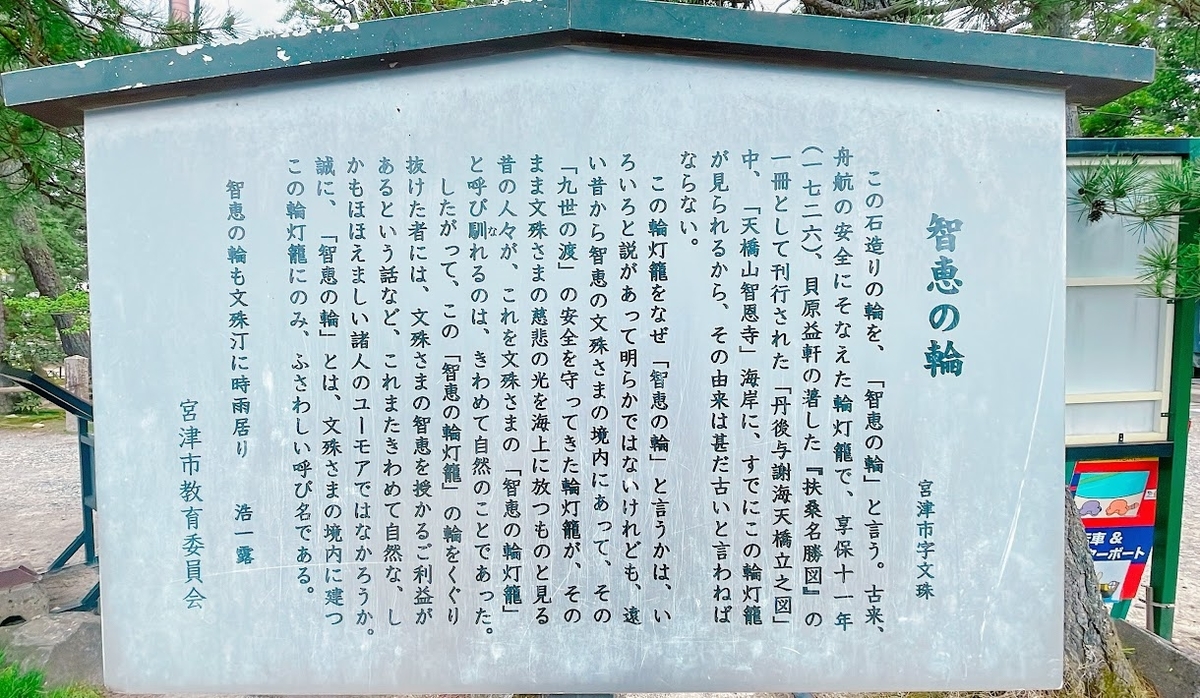 智恵の輪
宮津市字文珠
この石造りの輪を、「智恵の輪」と言う。古来、
舟航の安全にそなえた輪灯籠で、享保十一年
(一七二六)、貝原益軒の著した『扶桑名勝図』の
一冊として刊行された「丹後与謝海天橋立之図」
中、「天橋山智恩寺」海岸に、すでにこの輪灯籠
が見られるから、その由来は甚だ古いと言わねば
ならない。
この輪灯籠をなぜ「智恵の輪」と言うかは、い
ろいろと説があって明らかではないけれども、遠
い昔から智恵の文殊さまの境内にあって、その
「九世の渡」の安全を守ってきた輪灯籠が、その
まま文殊さまの慈悲の光を海上に放つものと見る
昔の人々が、これを文殊さまの「智恵の輪灯籠」
と呼び馴れるのは、きわめて自然のことであった。
な
したがって、この「智恵の輪灯籠」の輪をくぐり
抜けた者には、文殊さまの智恵を授かるご利益が
あるという話など、これまたきわめて自然な、し
かもほほえましい諸人のユーモアではなかろうか。
誠に、「智恵の輪」とは、文殊さまの境内に建つ
この輪灯籠にのみ、ふさわしい呼び名である。
智恵の輪も文殊汀に時雨居り 浩一露
宮津市教育委員会
車&
ーボート